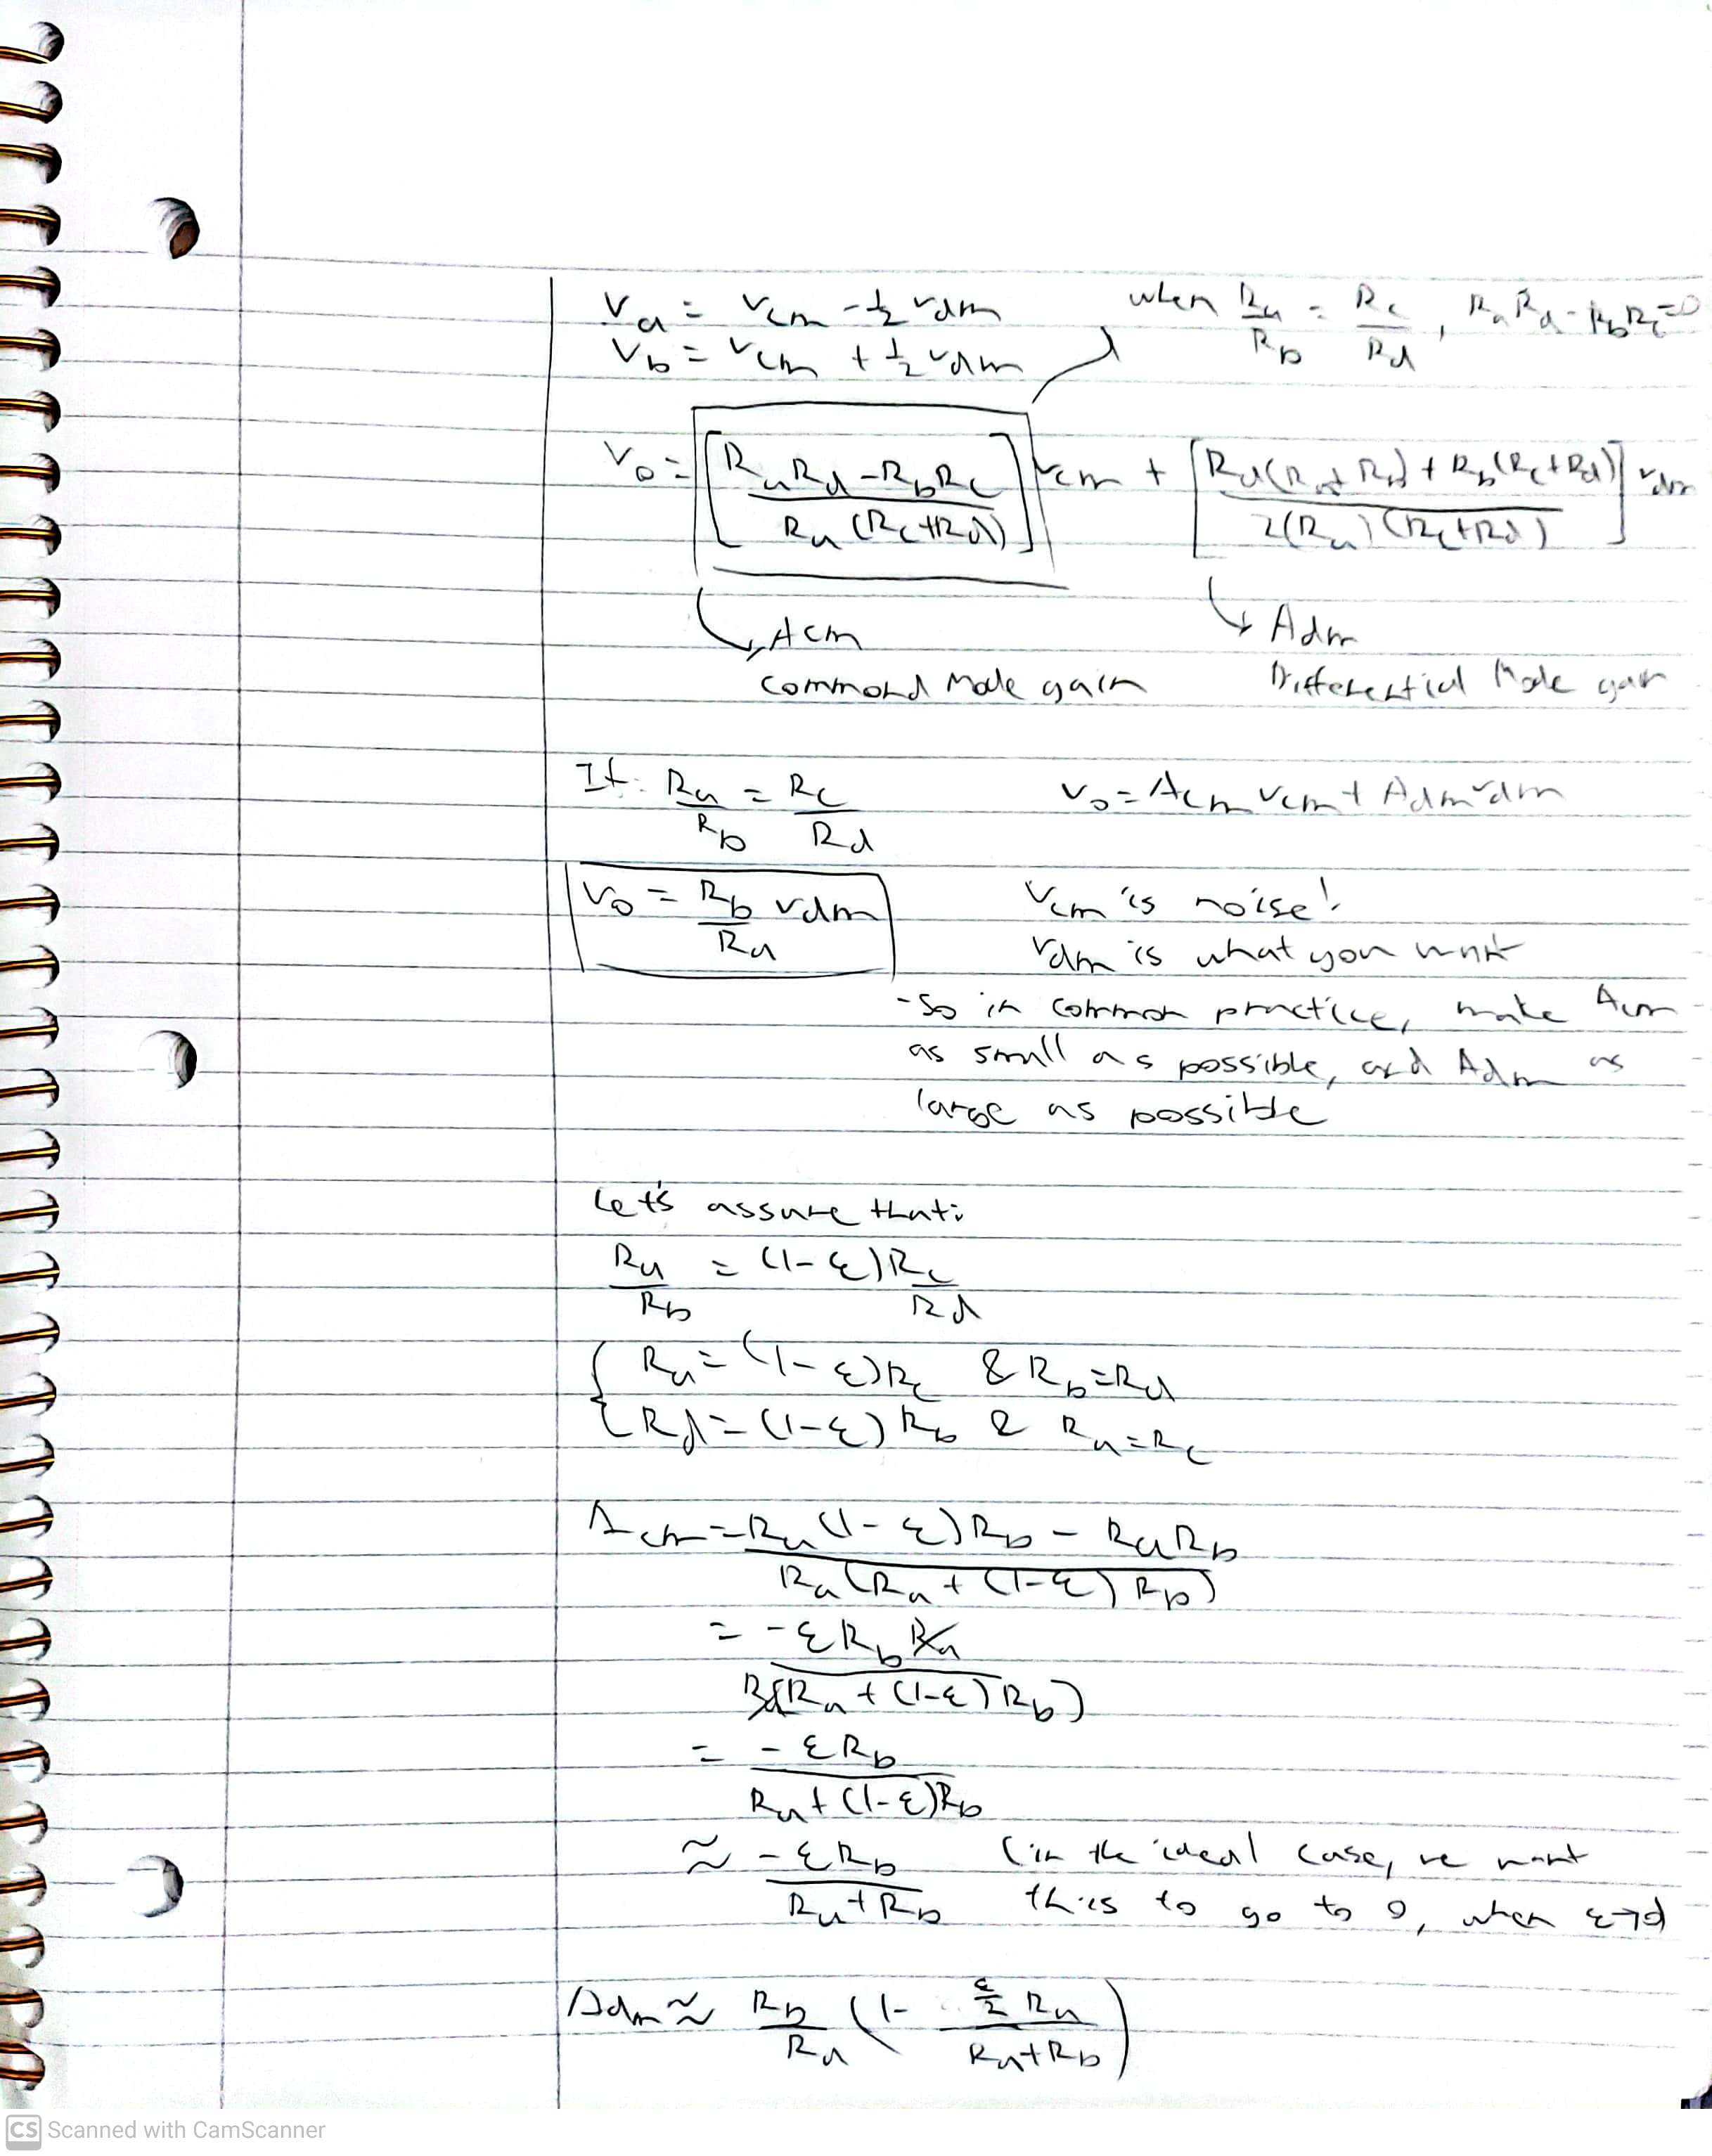 Va = Vcm - 1/2 vdm
Vb = Vcm + 1/2 vdm
when Ra/Rb = Rc/Rd, RaRd - RbRc = 0
Vo = [(RaRd - RbRc)/(Ra(Rc+Rd))] vcm + [(Rd(Ra+Rb) + Rb(Rc+Rd))/(2(Ra)(Rc+Rd))] vdm
Acm
Commond Mode gain
Adm
Differential Mode gain
If: Ra/Rb = Rc/Rd
Vo = Acm Vcm + Adm vdm
Vo = Rb/Ra vdm
Vcm is noise!
Vdm is what you want
- So in common practice, make Acm
as small as possible, and Adm as
large as possible
Let's assume that:
Ra/Rb = (1-ε)Rc/Rd
{ Ra = (1-ε)Rc & Rb = Rd
{ Rd = (1-ε)Rb & Ra = Rc
Acm = (Ra(1-ε)Rb - RaRb)/(Ra(Ra + (1-ε)Rb))
= -εRbRa/(Ra(Ra + (1-ε)Rb))
= -εRb/(Ra + (1-ε)Rb)
≈ -εRb/(Ra + Rb)
(in the ideal case, we want
this to go to 0, when ε→0
Adm ≈ Rb/Ra (1 - (ε/2 Ra)/(Ra+Rb))
CS Scanned with CamScanner